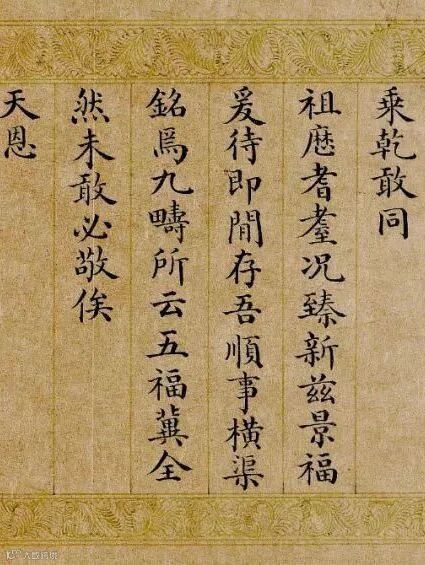 乘乾敢同
祖歷耆耋況臻新茲景福
爰待即閒存吾順事橫渠
銘焉九疇所云五福冀全
然未敢必敬俟
天恩